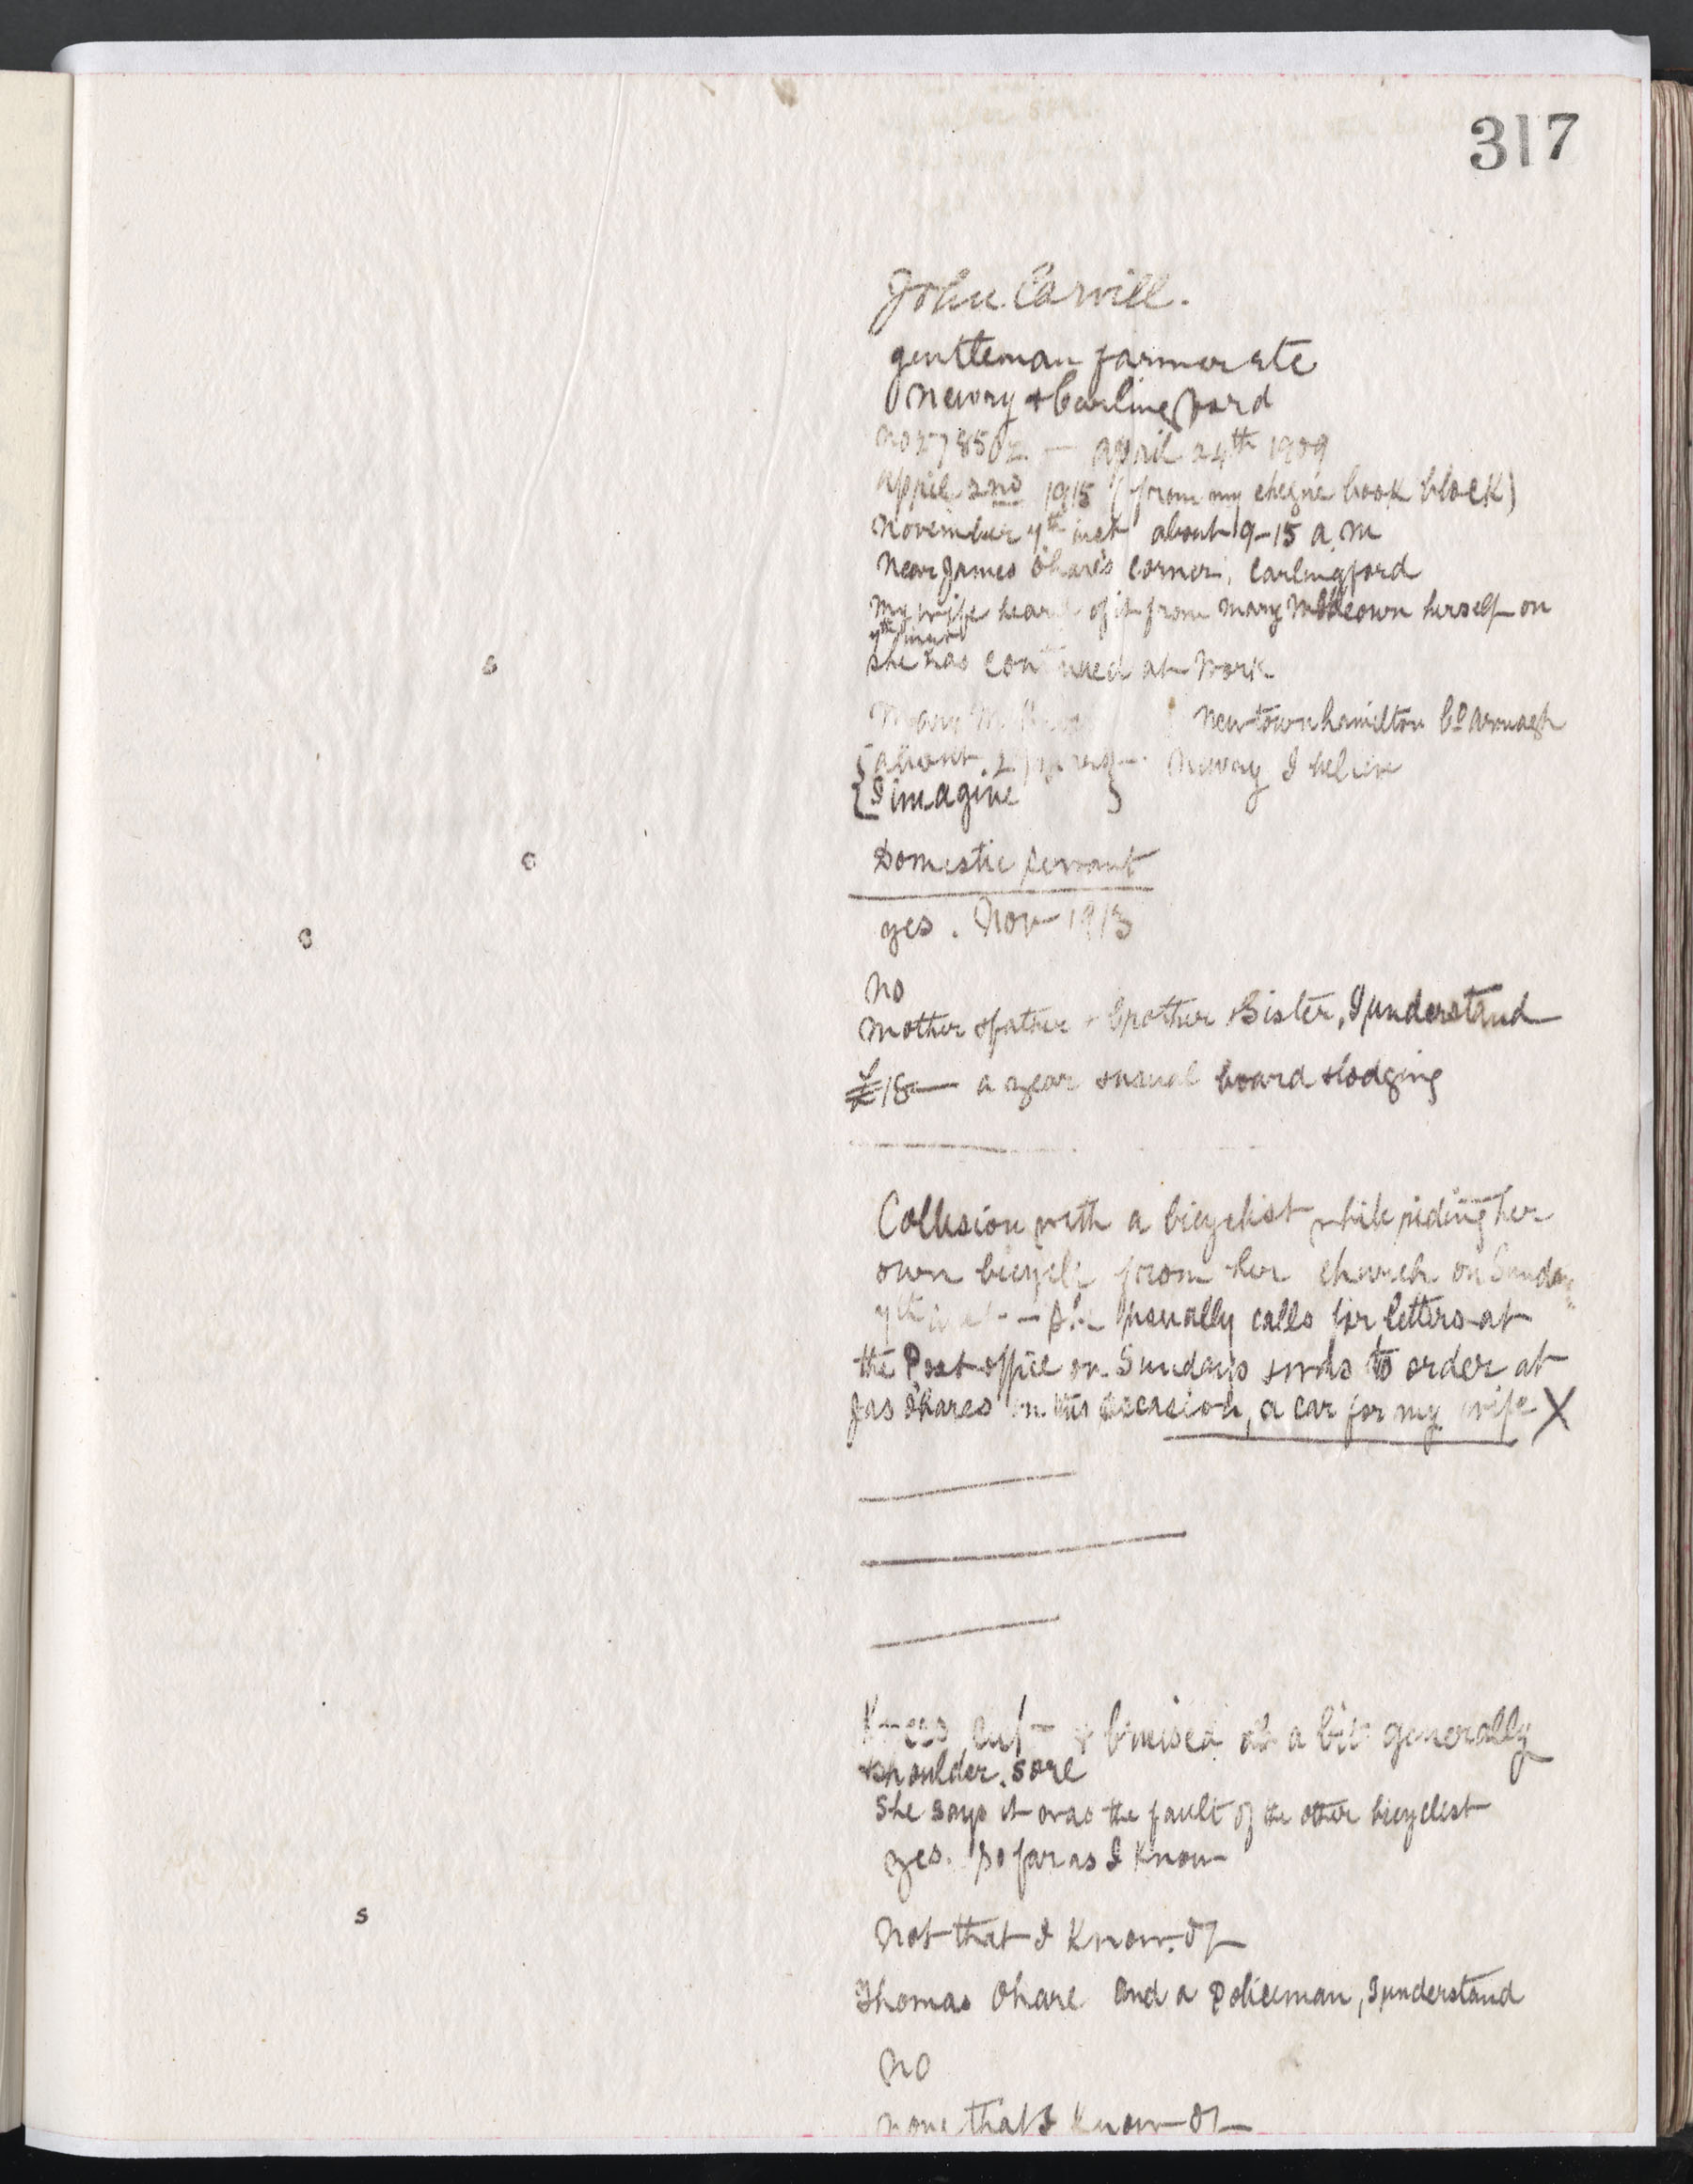 317
John Carvill.
gentleman farmer etc
Newry & Carlingford
April 24th 1909
April 2nd 1915 (from my cheque book block)
November 7th inst about 9-15 a.m
Near James Ohare's Corner, Carlingford
My wife heard of it from Mary McKeown herself on
7th inst
She has continued at work
Mary Newtownhamilton Co Armagh
{about Newry I believe
{I imagine }
Domestic servant
yes. Nov 1913
No
Mother & father & brother & Sister, I understand
£18— a year & usual board & lodging
Collision with a bicyclist while riding her
own bicycle from her church on Sunday
7th inst — She usually calls for letters at
the Post office on Sundays & to order at
Jas Ohares on this occasion, a car for my wife X
Knees cut & bruised a bit generally
& shoulder sore
She says it was the fault of the other bicyclist
yes. So far as I know
Not that I know of
Thomas Ohare and a Policeman, I understand
No
None that I know of